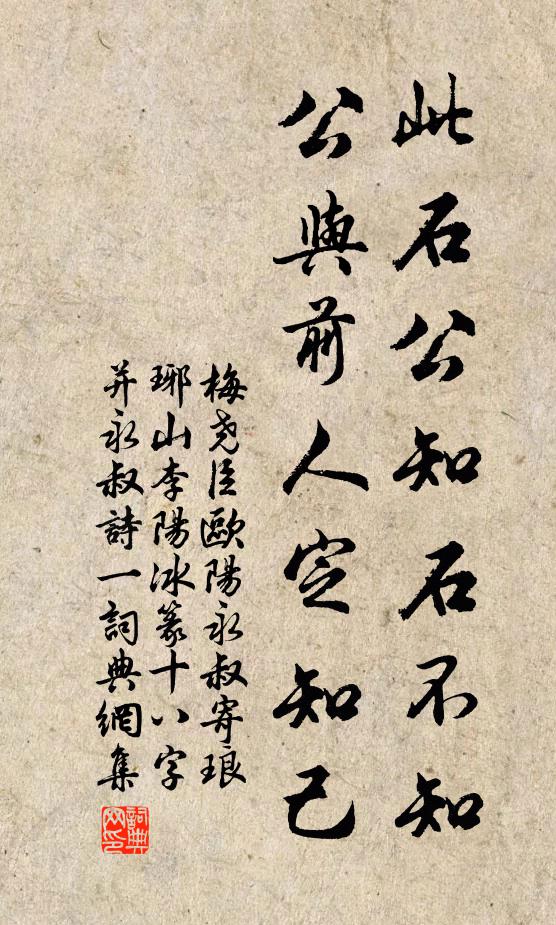 此石公知石不知
公與前人定知己
梅尧臣歐陽永叔寄琅
琊山李陽冰篆十八字
并永叔詩一詞典網集
詞典
网印